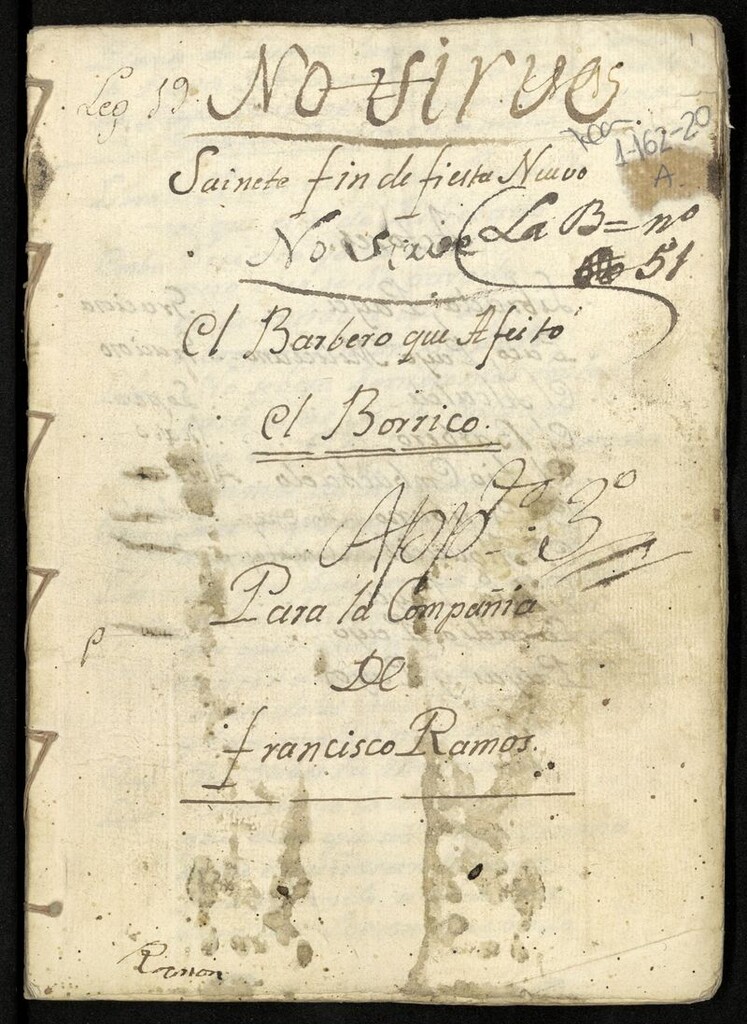 1
Leg 19. No sirve
1-162-20
A
Sainete fin de fiesta Nuevo
No Sirve
La B = nº
51
El Barbero que Afeito
el Borrico.
App.do 3º
Para la Compañia
De
francisco Ramos.
P